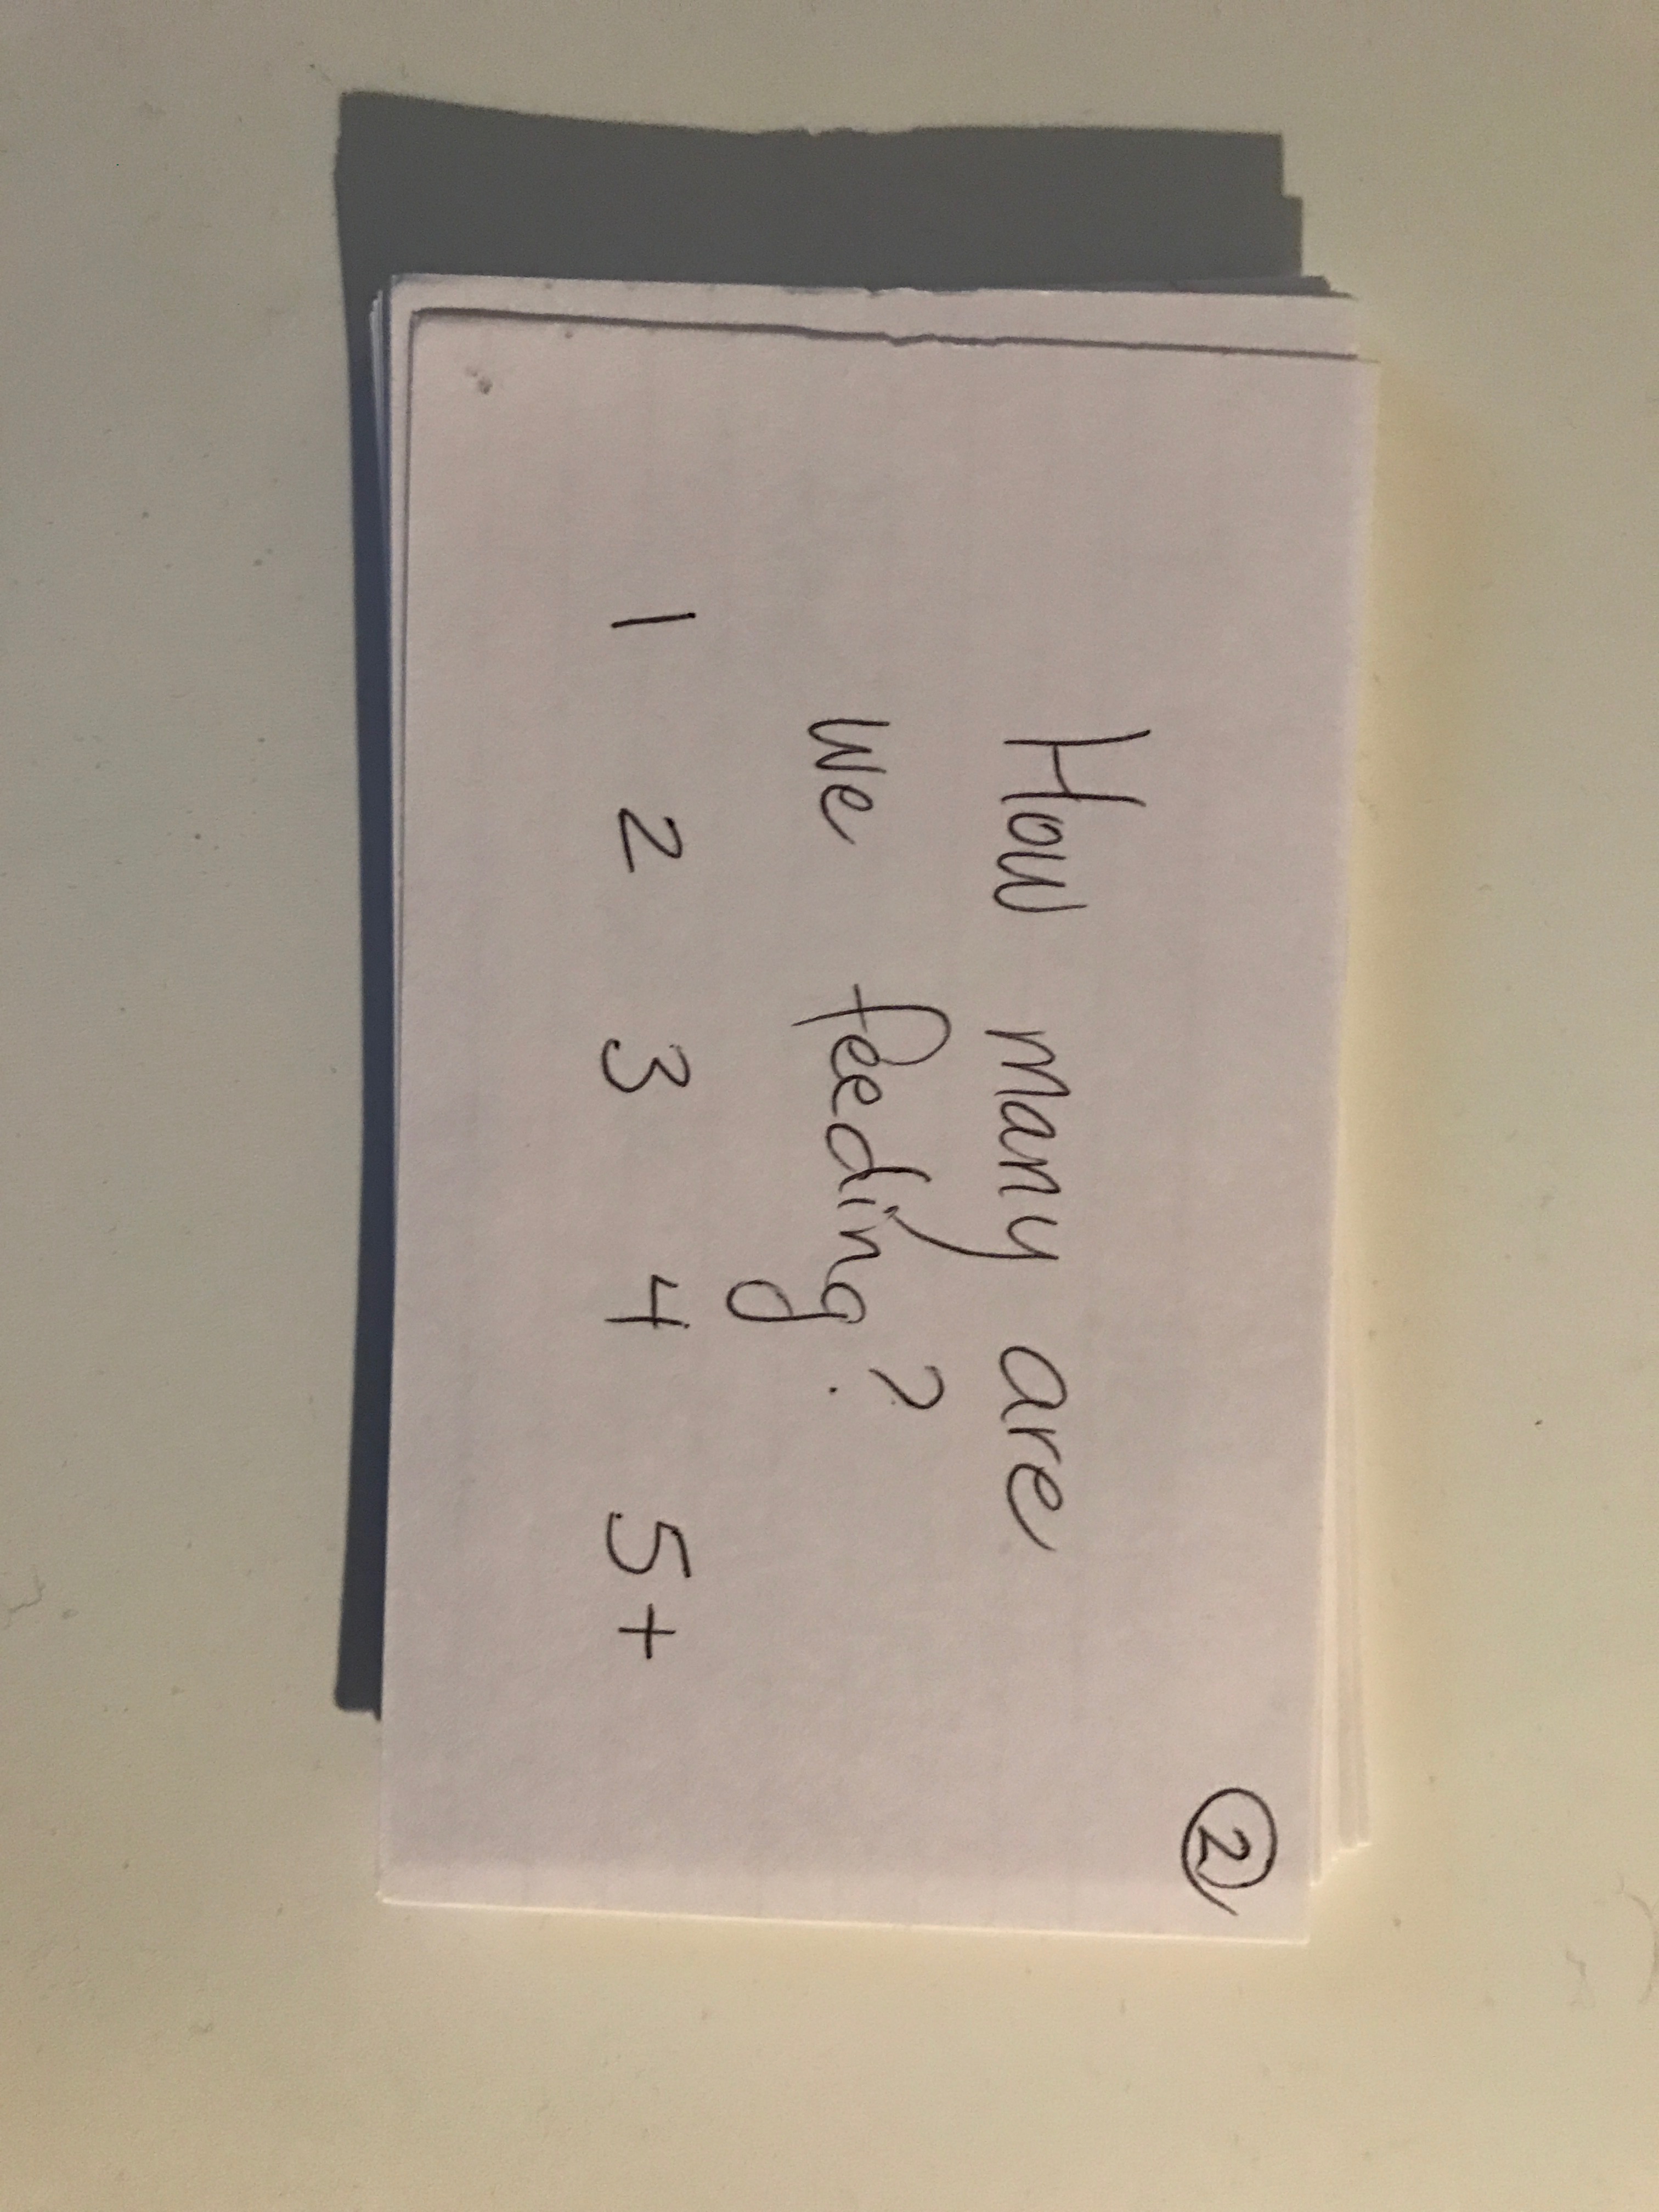 2
How many are
we feeding?
1 2 3 4 5+